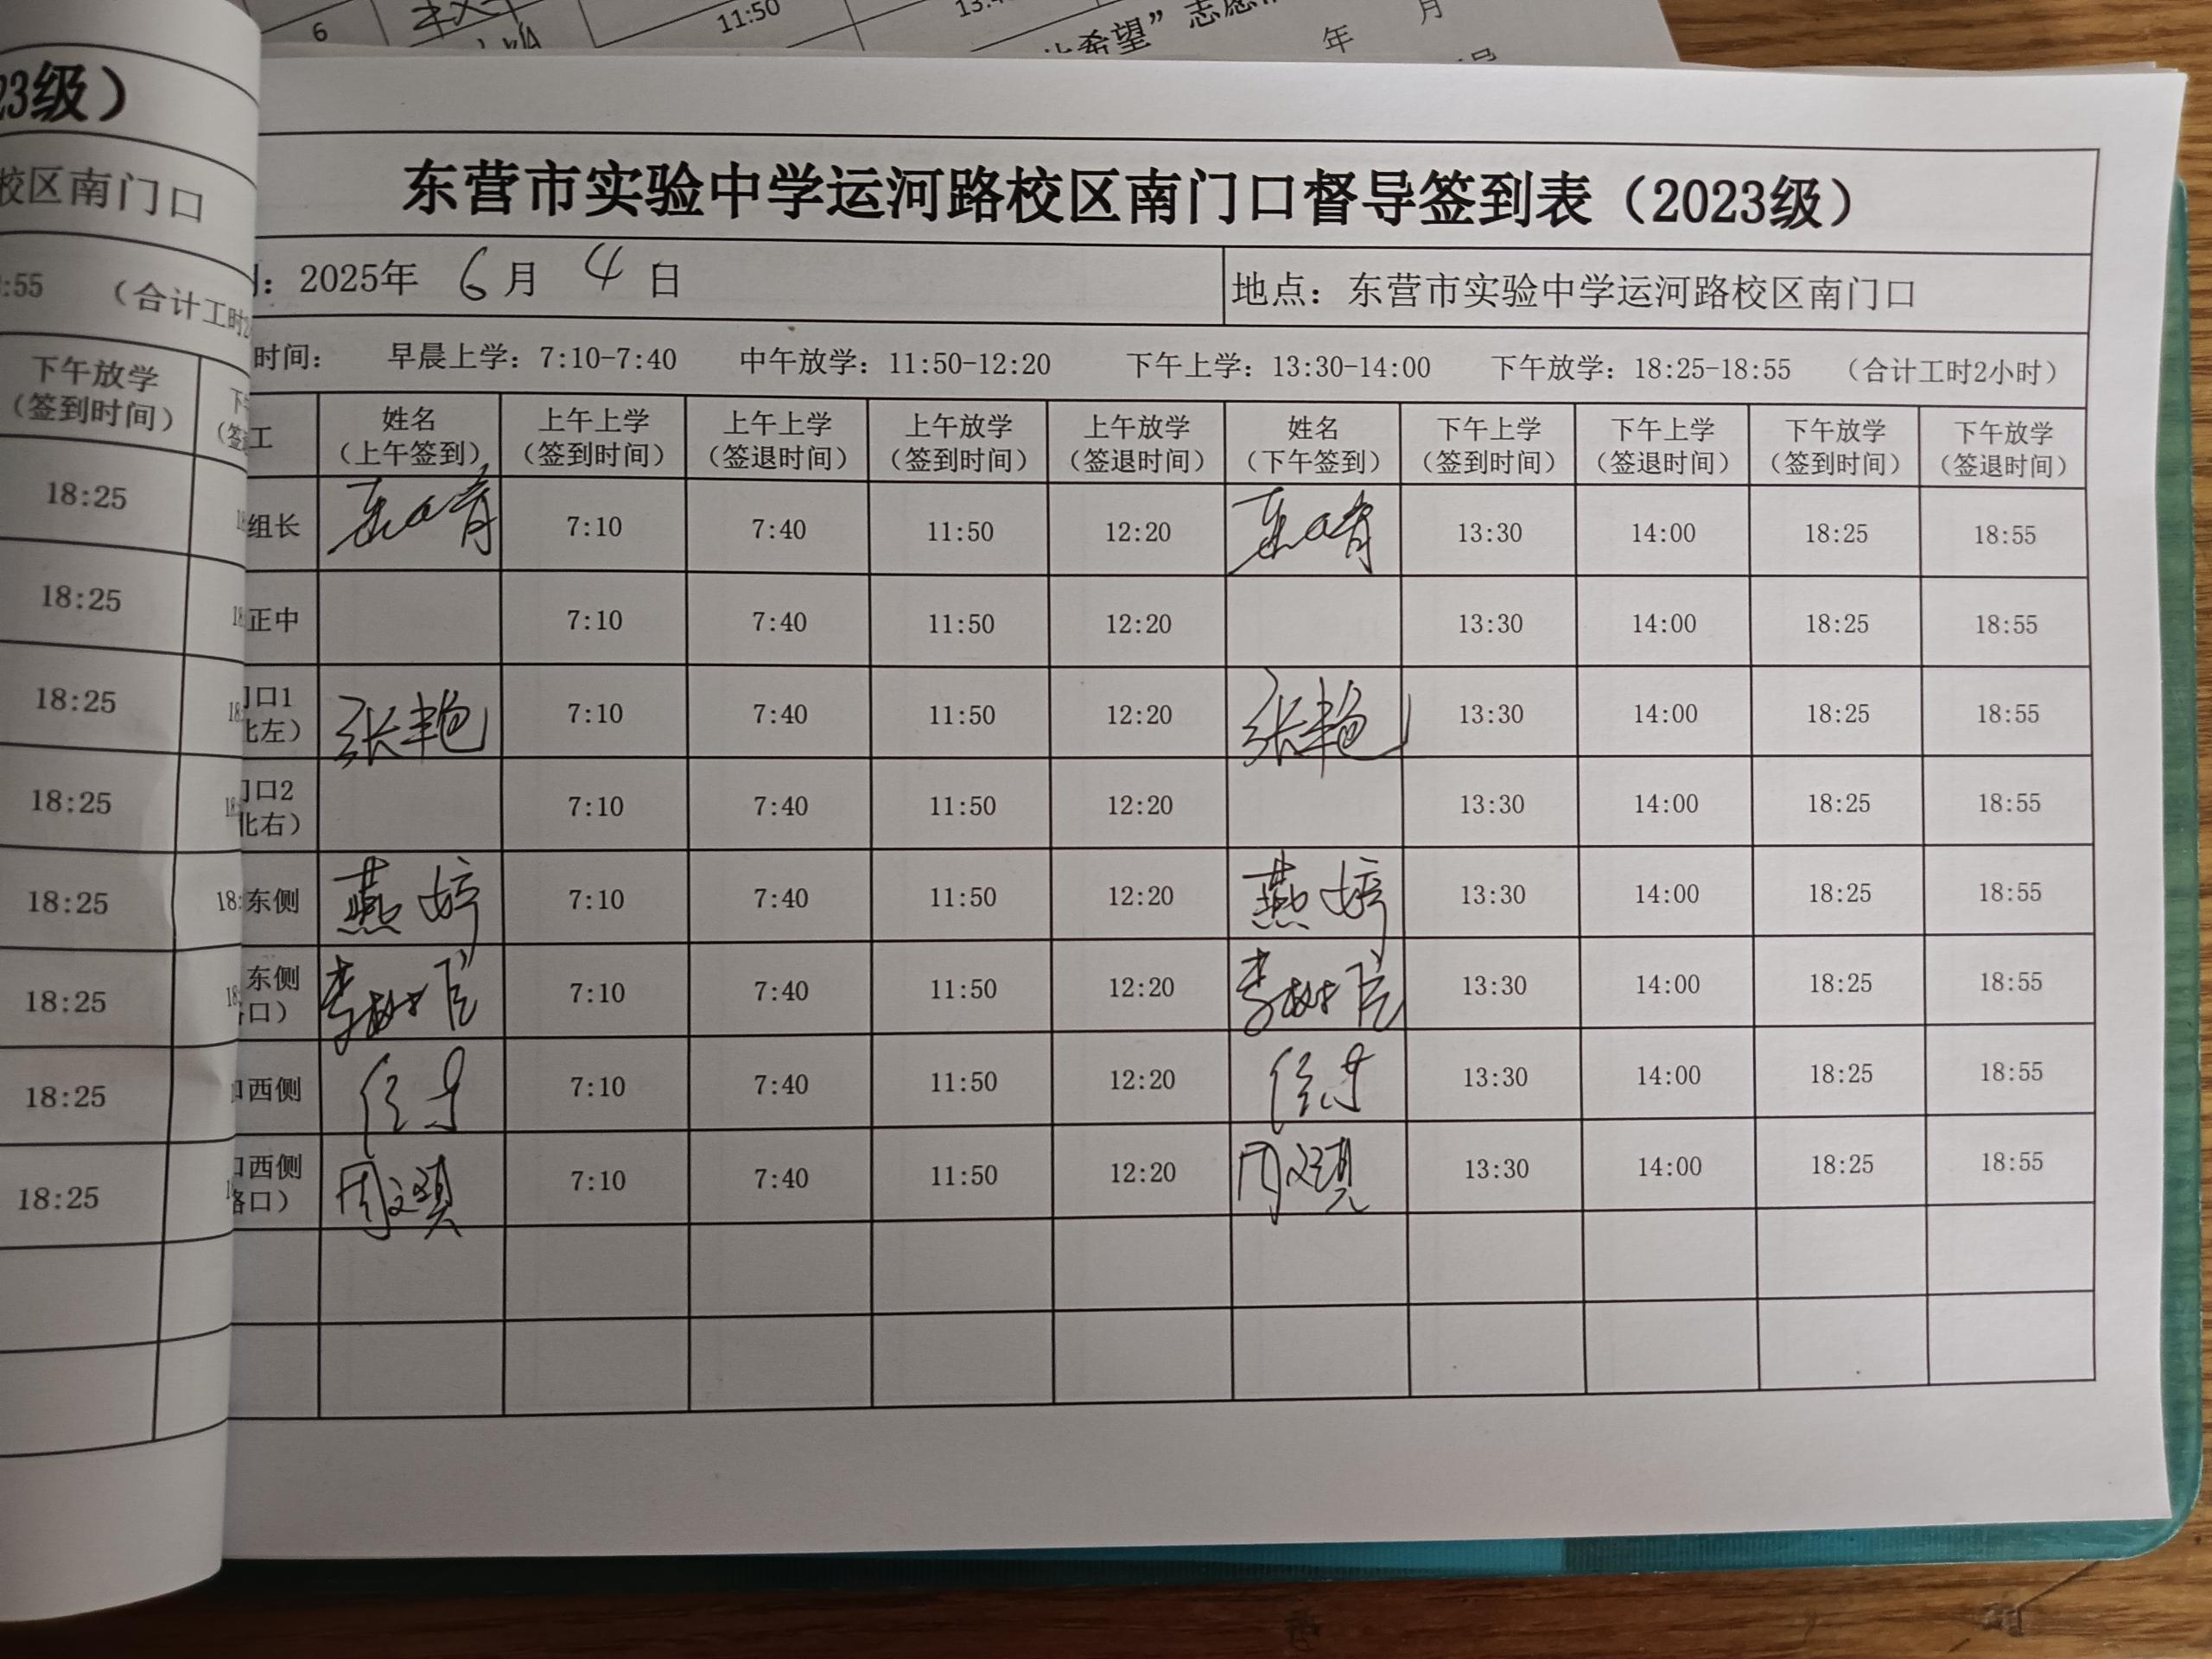 6
11:50
希望”志愿
年 月
23级）
校区南门口
:55 （合计工时2
下午放学
（签到时间）
18:25
18:25
18:25
18:25
18:25
18:25
18:25
18:25
东营市实验中学运河路校区南门口督导签到表（2023级）
：2025年 6月 4日 地点：东营市实验中学运河路校区南门口
时间： 早晨上学：7:10-7:40 中午放学：11:50-12:20 下午上学：13:30-14:00 下午放学：18:25-18:55 （合计工时2小时）
工 姓名 上午上学 上午上学 上午放学 上午放学 姓名 下午上学 下午上学 下午放学 下午放学
（上午签到） （签到时间） （签退时间） （签到时间） （签退时间） （下午签到） （签到时间） （签退时间） （签到时间） （签退时间）
组长 7:10 7:40 11:50 12:20 13:30 14:00 18:25 18:55
正中 7:10 7:40 11:50 12:20 13:30 14:00 18:25 18:55
口1
北左） 张艳 7:10 7:40 11:50 12:20 张艳 13:30 14:00 18:25 18:55
口2
北右） 7:10 7:40 11:50 12:20 13:30 14:00 18:25 18:55
东侧 燕婷 7:10 7:40 11:50 12:20 燕婷 13:30 14:00 18:25 18:55
东侧
口） 李 7:10 7:40 11:50 12:20 李 13:30 14:00 18:25 18:55
口西侧 7:10 7:40 11:50 12:20 13:30 14:00 18:25 18:55
口西侧
路口） 周文 7:10 7:40 11:50 12:20 周文 13:30 14:00 18:25 18:55